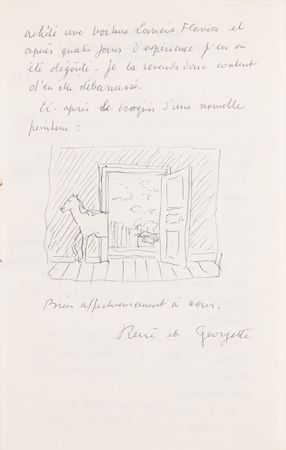 acheté une voiture Lancia Flavia et
après quatre jours d'expérience j'en ai
été dégoûté. Je la revends donc content
d'en être débarrassé.
Ci-après le croquis d'une nouvelle
peinture :
Bien affectueusement à vous,
René et Georgette